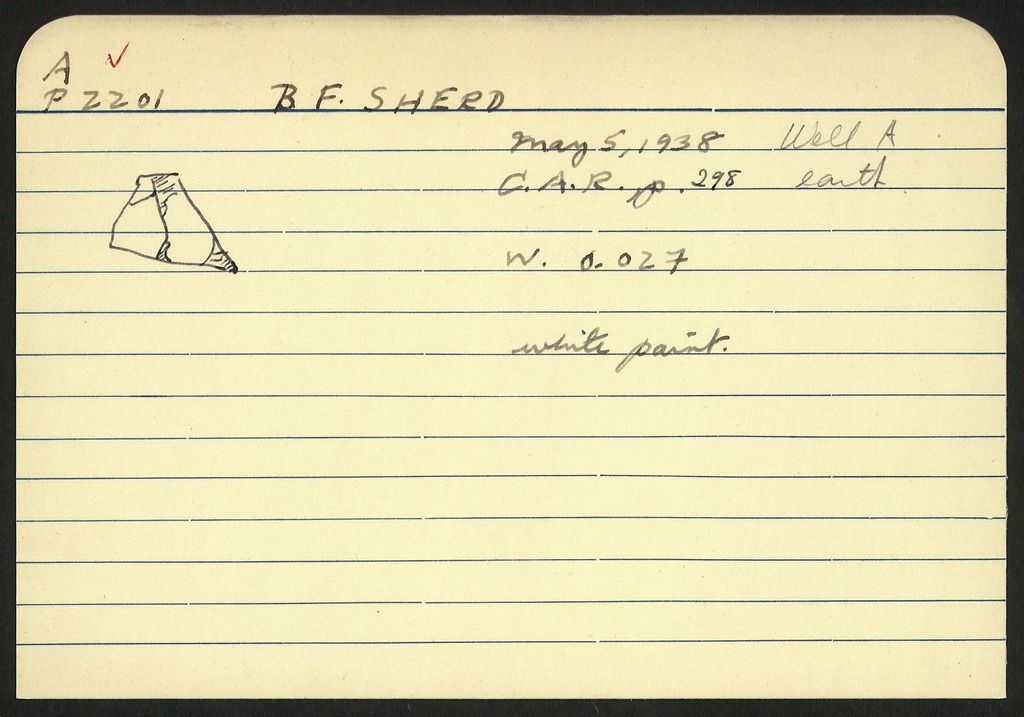 A ✓
P 2201 B.F. SHERD
May 5, 1938 Well A
C.A.R. p. 298 earth
W. 0.027
white paint.